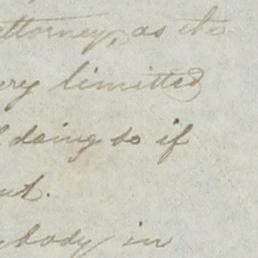 attorney, as the
limitted
doing so if
body in